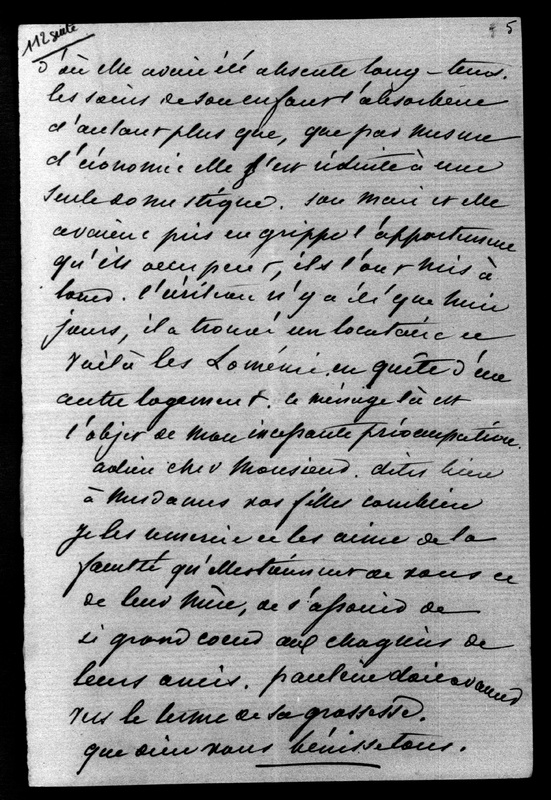 112 suite
5
d'où elle avait été absente long-tems.
les soins de son enfant l'absorbent
d'autant plus que, que par mesure
d'économie elle s'est réduite à une
seule domestique. son mari et elle
avaient pris en grippe l'appartement
qu'ils occupent, ils l'ont mis à
louer. l'écriteau n'y a été que huit
jours, il a trouvé un locataire et
voilà les Loménie en quête d'un
autre logement. ce ménage là est
l'objet de mon incessante préoccupation.
adieu cher Monsieur. dites bien
à Mesdames vos filles combien
je les remercie et les aime de la
faculté qu'elles tiennent de vous et
de leur mère, de s'associer de
si grand coeur aux chagrins de
leurs amis. pauline doit avancer
vers le terme de sa grossesse.
que dieu vous bénisse tous.